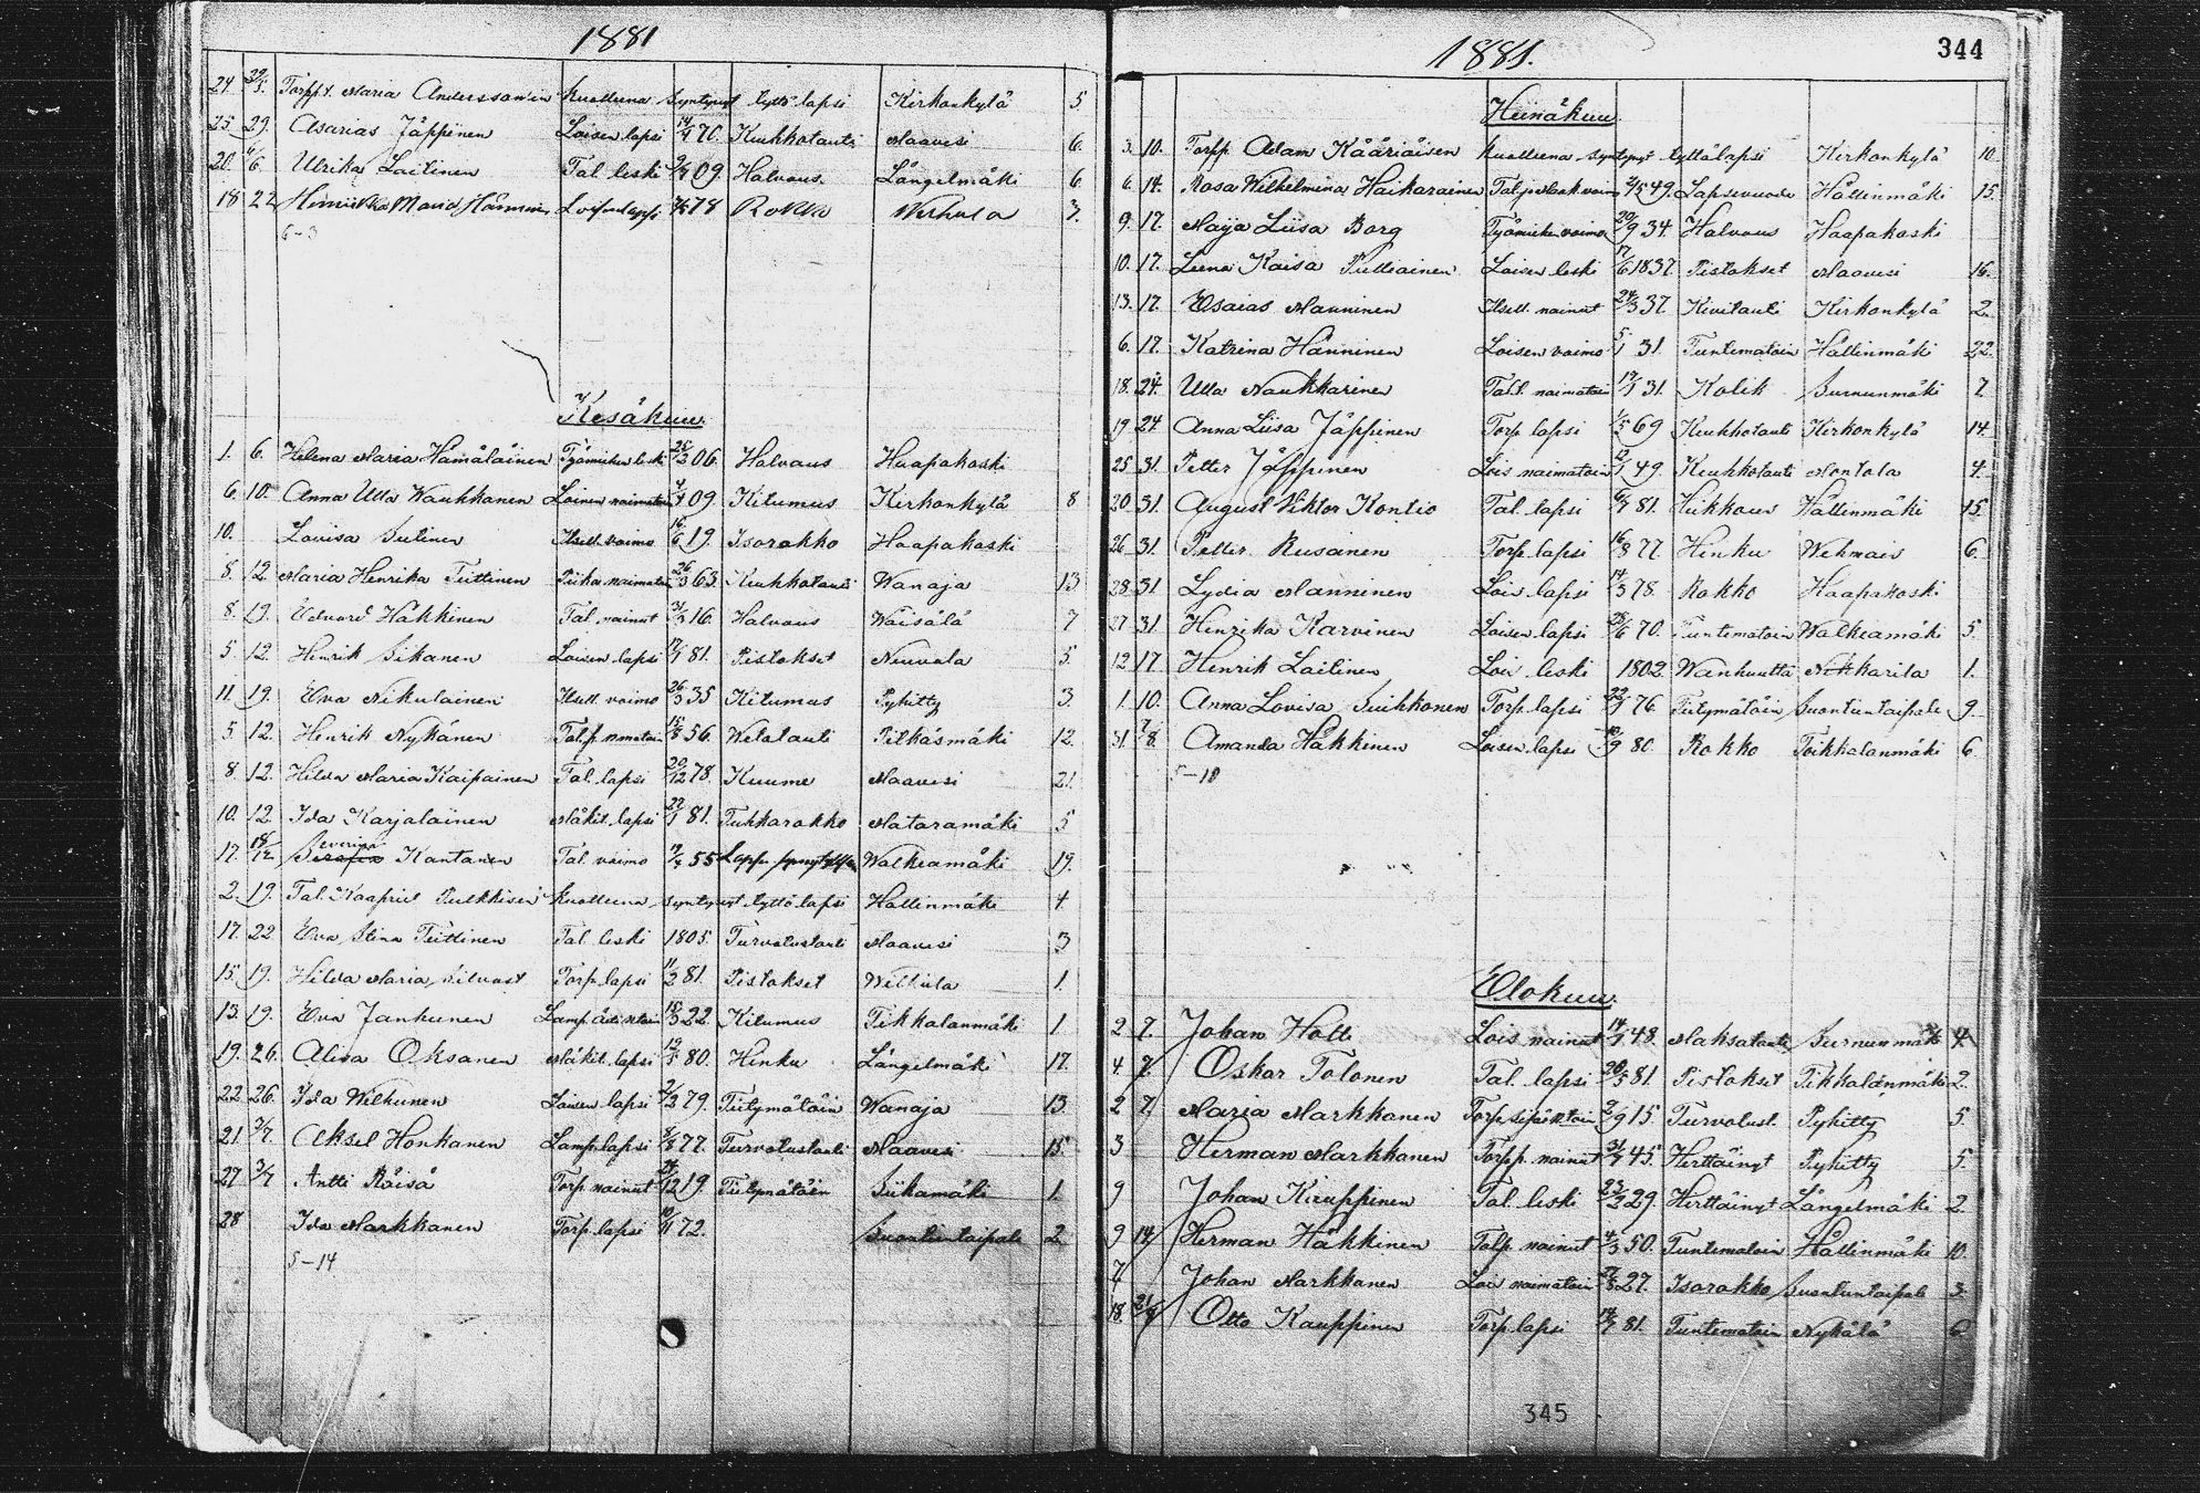 1881
24 29/5. Torpp. t. Maria Anderssonin kuolleena syntynyt tyttölapsi Kirkonkylä 5
25 29. Asarias Jäppinen Loisen lapsi 14/4 70. Keuhkotauti Maavesi 6.
20. 6/6 Ulrika Laitinen Tal. leski 9/4 09. Halvaus. Längelmäki 6
18 22 Maria Hänninen 78 Rokko 3.
6-3
Kesäkuu.
1. 6. Helena Maria Hämäläinen Työmiehen leski 28/3 06. Halvaus Haapakoski
6. 10. Anna Ulla Kaukkanen Loinen naimatoin 4/4 09. Kitumus Kirkonkylä 8
10. Lovisa Sutinen Itsell. vaimo 16/6 19. Isorokko Haapakoski
8. 12. Maria Henrika Tiittinen Piika naimatoin 26/3 63. Keuhkotauti Wanaja 13
8. 19. Edvard Häkkinen Tal. nainut 31/3 16. Halvaus Wäisälä 7
5. 12. Henrik Sikanen Loisen lapsi 81. Pistokset Neuvola 5.
11. 19. Eva Nikulainen Itsell. vaimo 26/3 35 Kitumus Pyhitty 3.
5 12. Henrik Nykänen 15/8 56. Wetotauti Pitkäsmäki 12.
8. 12. Hilda Maria Kaipainen Tal. lapsi 20/12 78. Kuume Maavesi 21.
10. 12. Ida Karjalainen Mäkit. lapsi 22/1 81. Tuhkarokko Mataramäki 5
17. 18/12 Severina Kantanen Tal. vaimo 55 Walkeamäki 19.
2. 19. Tal. Kaapriel Pulkkisen kuolleena syntynyt tyttölapsi Hällinmäki 4.
17. 22 Eva Stina Tiittinen Tal. leski 1805. Turvotustauti Maavesi 3
15. 19. Hilda Maria Silvast Torp. lapsi 11/2 81. Pistokset Wettula 1.
13. 19. Eva Jankunen 15/3 22. Kitumus Tikkalanmäki 1
19. 26. Alina Oksanen Mäkit. lapsi 12/5 80. Hinku Längelmäki 17.
22. 26. Ida Wilkunen Loisen lapsi 2/3 79. Tietymätöin Wanaja 13.
21. 3/7. Aksel Honkanen Lamp. lapsi 8/8 77. Turvotustauti Maavesi 15.
27 3/7 Antti Räisä Torp. nainut 24/12 19. Tietymätöin Siikamäki 1.
28 Ida Markkanen Torp. lapsi 10/11 72. Suontientaipale 2
5-14
1881.
344
Heinäkuu.
3. 10. Torpp. Adam Kääriäisen kuolleena syntynyt tyttölapsi Kirkonkylä 10
6. 14. Rosa Wilhelmina Haikarainen 2/5 49. Lapsivuode Hällinmäki 15.
9. 17. Maija Liisa Borg Työmiehen vaimo 20/9 34. Halvaus Haapakoski
10. 17. Leena Kaisa Pulliainen Loisen leski 17/6 1837. Pistokset Maavesi 16.
13. 17. Esaias Manninen Itsell. nainut 24/3 37. Kivitauti Kirkonkylä 2
6. 17. Katrina Hänninen Loisen vaimo 5/1 31. Tuntematoin Hällinmäki 22.
18. 24. Ulla Naukkarinen Tal. t. naimatoin 19/1 31. Kolik Surnunmäki 7
19 24 Anna Liisa Jäppinen Torp. lapsi 1/5 69 Keuhkotauti Kirkonkylä 14.
25 31. Petter Jäppinen Lois naimatoin 12/1 49. Keuhkotauti Montola 4.
20. 31. August Viktor Kontio Tal. lapsi 6/7 81. Heikkous Hällinmäki 15
26 31. Petter Rusanen Torp. lapsi 16/8 77 Hinku Wehmais 6.
28 31 Lydia Manninen Lois. lapsi 14/3 78. Rokko Haapakoski
27 31 Henrika Karvinen Loisen lapsi 28/6 70. Tuntematoin Walkeamäki 5.
12 17. Henrik Laitinen Lois leski 1802. Wanhuutta Nikkarila 1.
1. 10. Anna Lovisa Suihkonen Torp. lapsi 22/4 76. Tietymätöin Suontientaipale 9.
31. 7/8. Amanda Häkkinen Loisen lapsi 10/9 80. Rokko Toikkalanmäki 6
5-10
Elokuu.
2 7. Johan Holtti Lois nainut 14/4 48. Maksatauti Surnunmäki 4.
4. 7. Oskar Tolonen Tal. lapsi 26/5 81. Pistokset Tikkalanmäki 2.
2 7. Maria Markkanen 2/9 15. Turvotust. Pyhitty 5.
3 Herman Markkanen Torpp. nainut 31/7 45. Herttäinyt Pyhitty 5.
9 Johan Kauppinen Tal. leski 23/2 29. Herttäinyt Längelmäki 2
9 14/ Herman Häkkinen Talp. nainut 4/3 50. Tuntematoin Hällinmäki 10.
7 Johan Markkanen Lois naimatoin 27/8 27. Isorokko Suontientaipale 3.
18. 21/8 Otto Kauppinen Torp. lapsi 14/7 81. Tuntematoin Nykälä 6
345